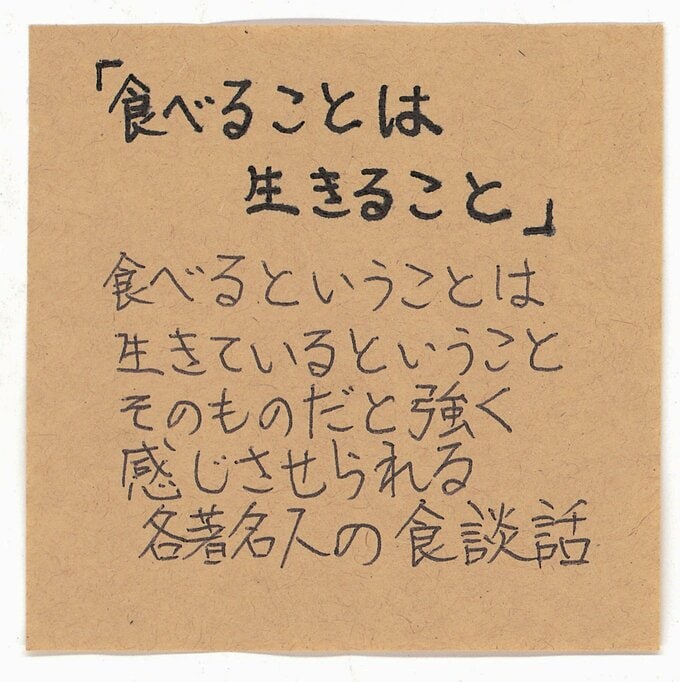 「食べることは
生きること」
食べるということは
生きているということ
そのものだと強く
感じさせられる
各著名人の食談話